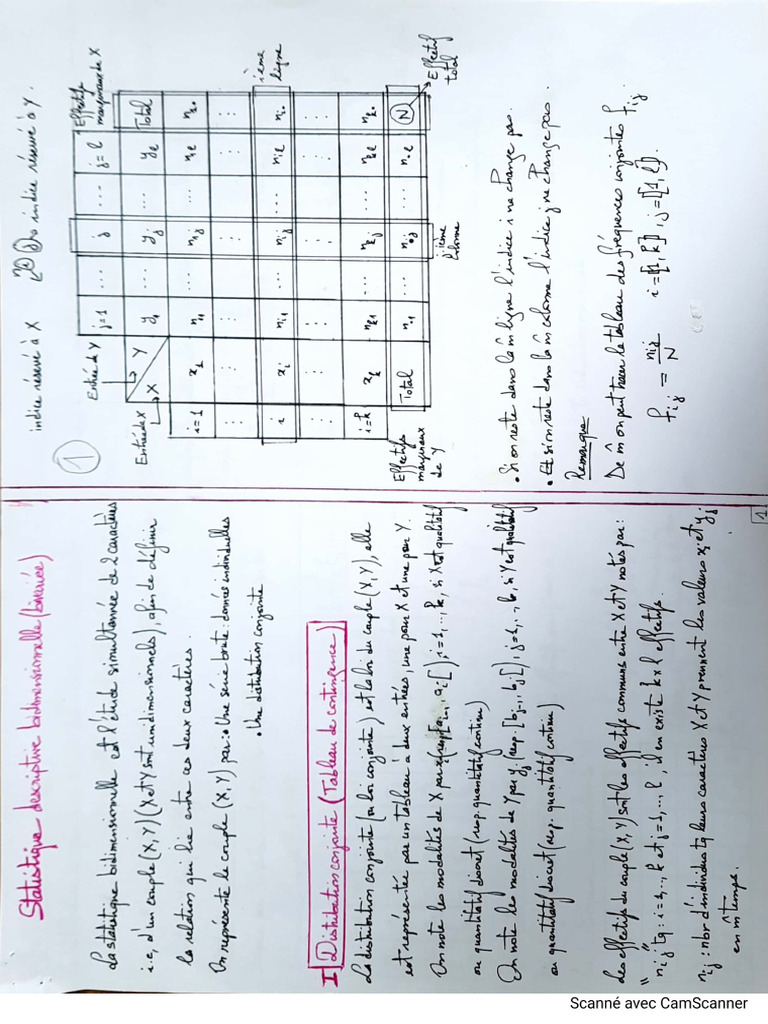 Statistique descriptive bidimensionnelle (bivariée)
La statistique bidimensionnelle est l'étude simultannée de 2 caractères
i.e, d'un couple (X,Y) (X et Y sont unidimensionnels), afin de définir
la relation qui lie entre ces deux caractères.
On représente le couple (X,Y) par : • Une série brute : donnés individuelles
• Une distribution conjointe
I Distribution conjointe (Tableau de contingence)
La distribution conjointe (ou loi conjointe) est la loi du couple (X,Y), elle
est représentée par un tableau à deux entrées, une pour X et une pour Y.
On note les modalités de X par xi (resp [ai-1, ai[), i=1,..,k, si X est qualitatif
ou quantitatif discret (resp. quantitatif continu)
On note les modalités de Y par yj (resp. [bj-1, bj[), j=1,.., l, si Y est qualitatif
ou quantitatif discret (resp. quantitatif continu)
Les effectifs du couple (X,Y) sont les effectifs communs entre X et Y notés par :
"nij" tq : i=1,.., k et j=1,.., l, il en existe k x l effectifs.
nij : nbr d'individus tq leurs caractères X et Y prennent les valeurs xi et yj
en m̂ temps.
1
indice réservé à X indice réservé à Y.
1
Entrée de Y
Effectifs marginaux de X
j=1 ... j ... j=l
Entrée de X
X Y y1 ... yj ... yl Total
i=1 x1 n11 ... n1j ... n1l n1•
⋮ ⋮ ⋮ ⋮
i xi ni1 ... nij ... nil ni• ième ligne
⋮ ⋮ ⋮ ⋮
i=k xk nk1 ... nkj ... nkl nk•
Total n•1 ... n•j ... n•l N
Effectifs marginaux de Y
jème colonne
Effectif total
• Si on reste dans la m̂ ligne l'indice i ne change pas.
• Et si on reste dans la m̂ colonne l'indice j ne change pas.
Remarque
De m̂ on peut tracer le tableau des fréquences conjointes fij
fij = nij / N i=[1,k], j=[1,l].
Scanné avec CamScanner